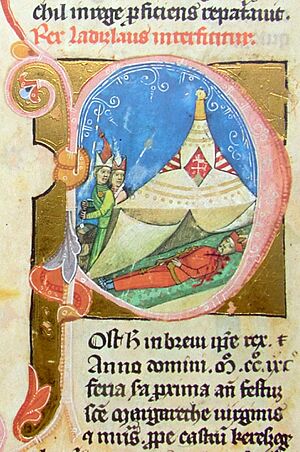 chil in rege ꝑficiens repatauit.
Rex ladislaus interficitur.
Post h̄ in breui ip̄e rex. l
Anno domini m̊. cc̊. lxc
feria s̄a prima an̄ festu
sc̄e margarethe uirginis
ꝓpe castrū kerezeg